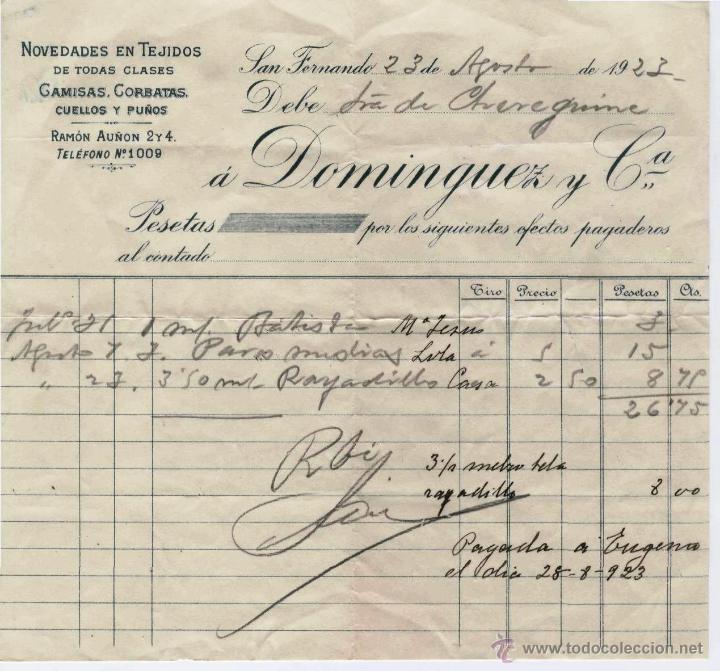 NOVEDADES EN TEJIDOS
DE TODAS CLASES
CAMISAS, CORBATAS,
CUELLOS Y PUÑOS
RAMÓN AUÑON 2 Y 4.
TELÉFONO Nº 1009
San Fernando 23 de Agosto de 1923-
Debe Sra de Chereguine
á Dominguez y Cª
Pesetas por los siguientes efectos pagaderos
al contado
Tiro Precio Pesetas Cts.
Julº 31 1 mt. Batista Mª Jesus 3
Agosto 7 3. Pares medias Lola á 5 15
" 23. 3'50 mt. Rayadillo Casa 2 50 8 75
26'75
Rbi
3½ metro tela
rayadillo 8 00
Pagada a Eugenio
el dia 28-8-923
todocoleccion.net